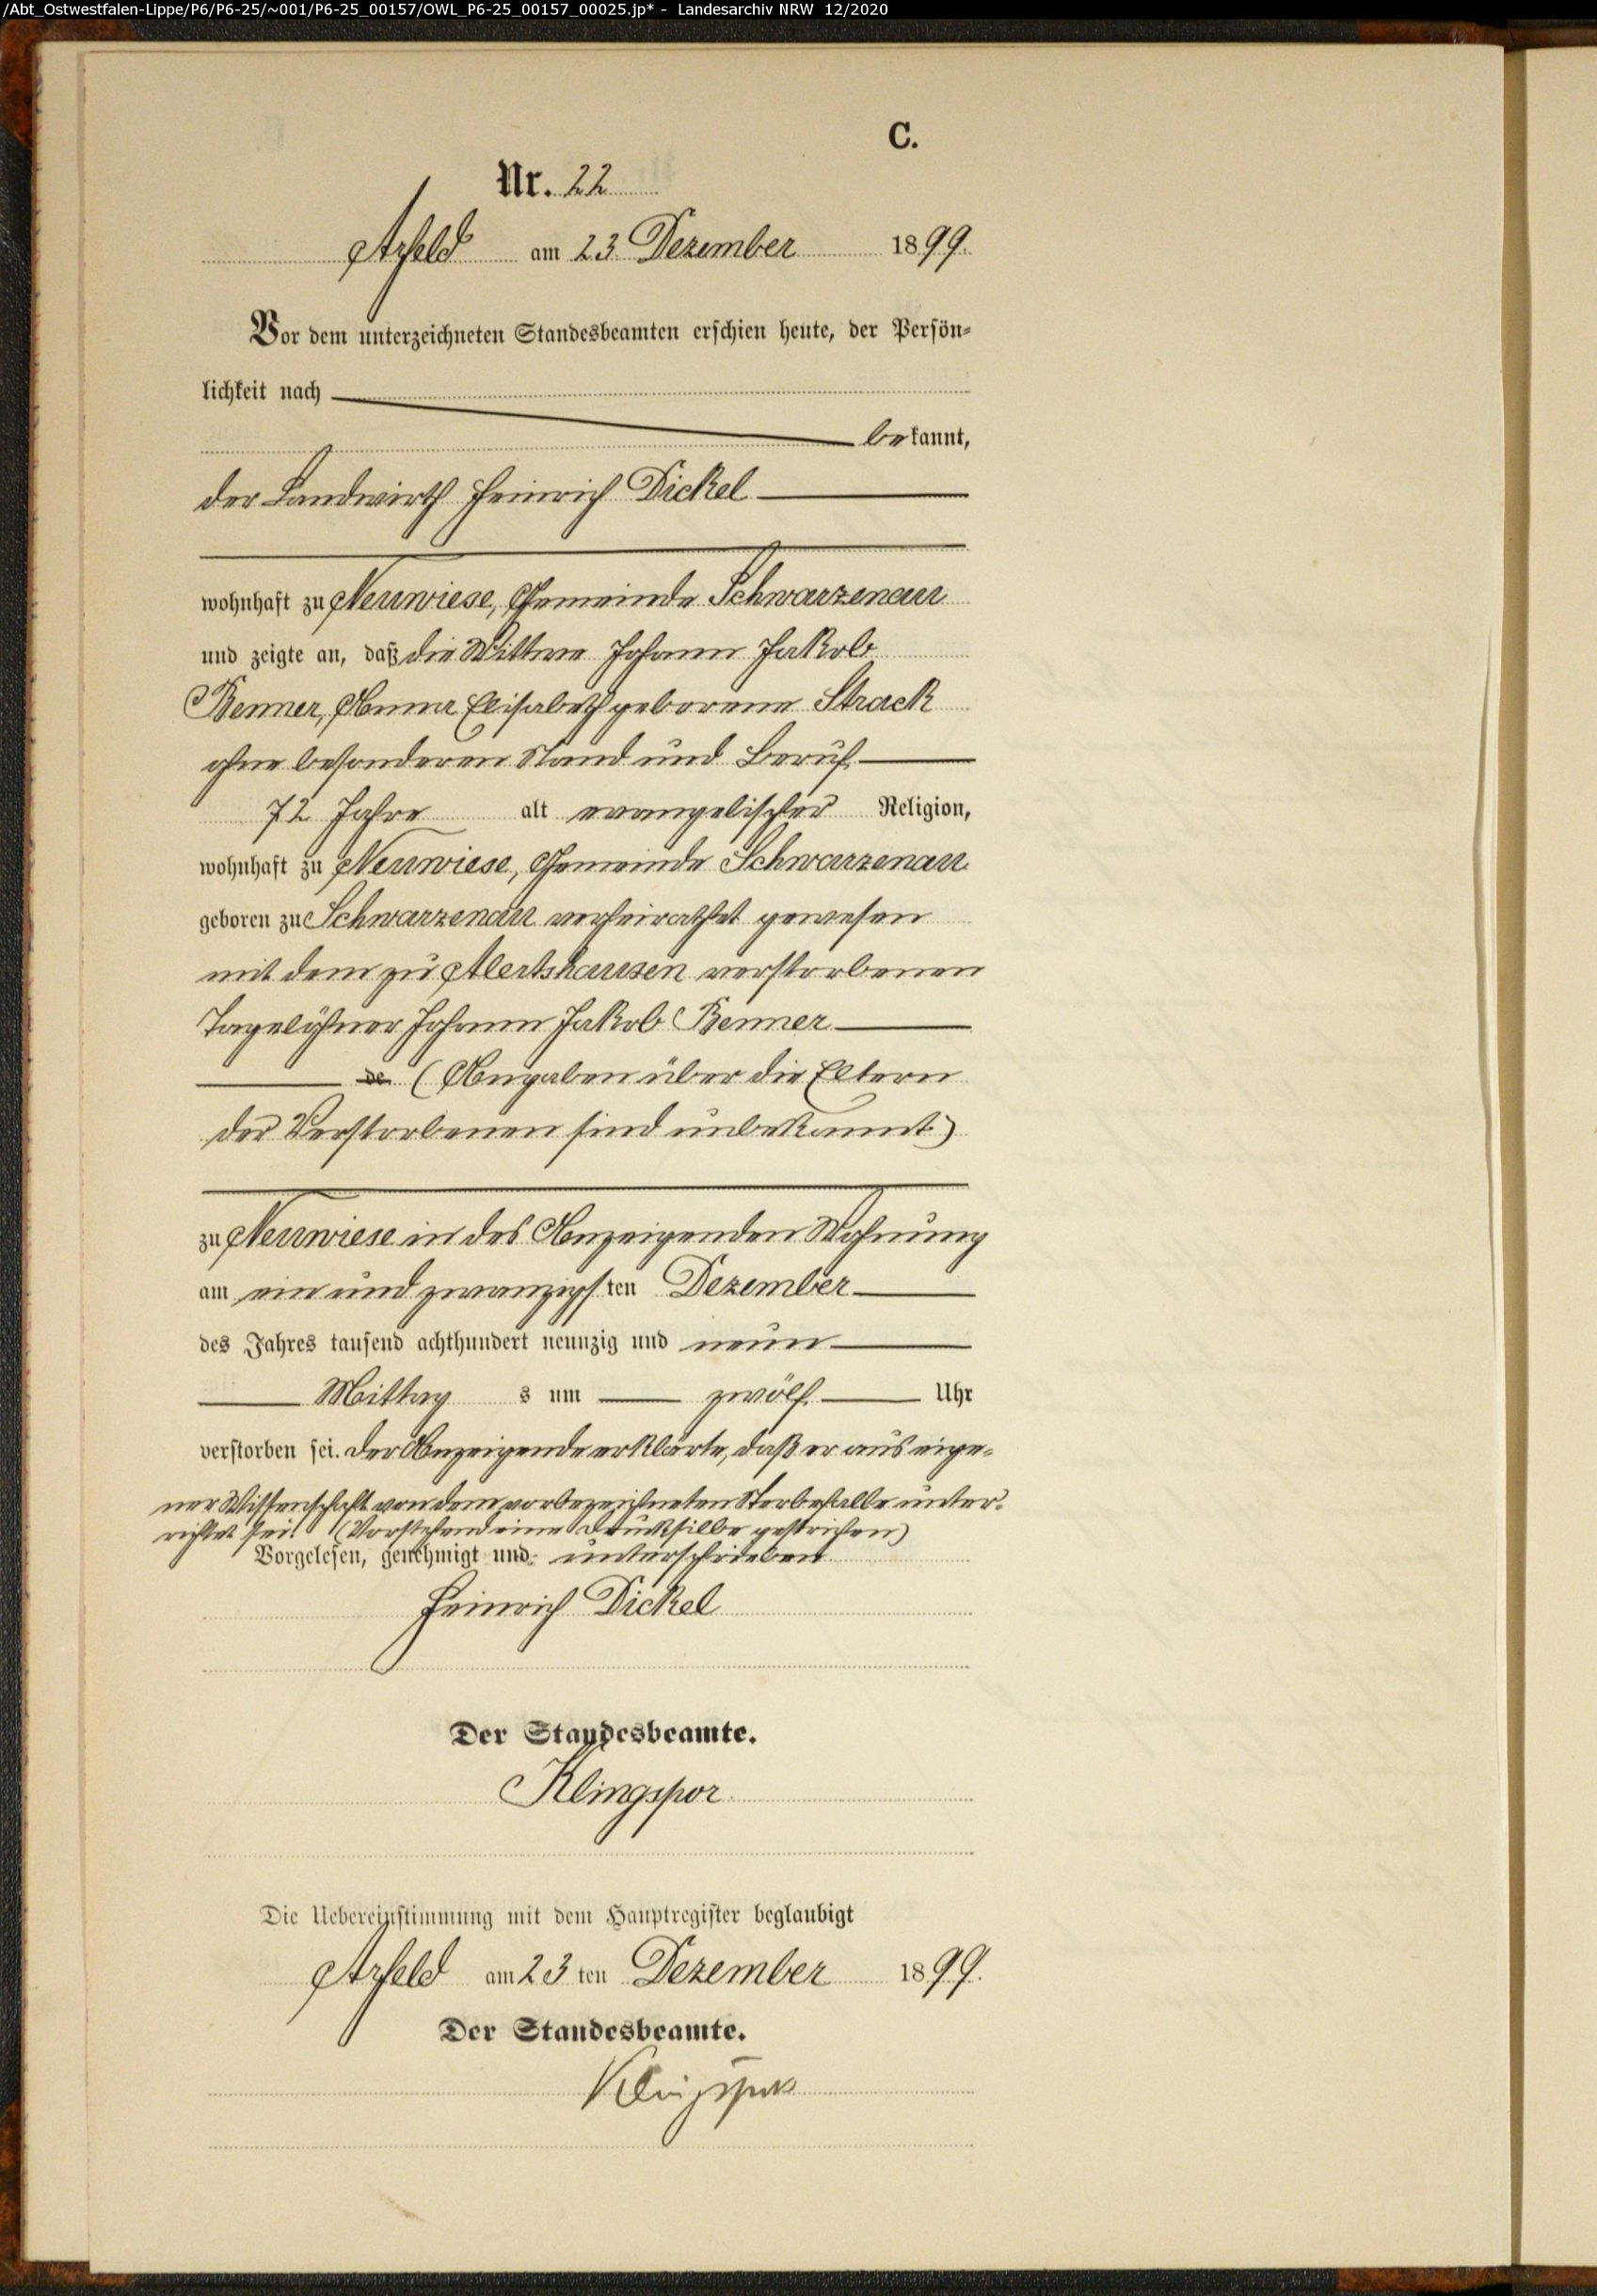 /Abt_Ostwestfalen-Lippe/P6/P6-25/~001/P6-25_00157/OWL_P6-25_00157_00025.jp* - Landesarchiv NRW 12/2020
C.
Nr. 22
Arfeld am 23. Dezember 1899.
Vor dem unterzeichneten Standesbeamten erschien heute, der Persön-
lichkeit nach
bekannt,
der Landwirth Heinrich Dickel
wohnhaft zu Neuwiese, Gemeinde Schwarzenau
und zeigte an, daß die Wittwe Johann Jakob
Benner, Anna Elisabeth geborene Strack
ohne besonderen Stand und Beruf
72 Jahre alt evangelischer Religion,
wohnhaft zu Neuwiese, Gemeinde Schwarzenau
geboren zu Schwarzenau verheirathet gewesen
mit dem zu Alertshausen verstorbenen
Tagelöhner Johann Jakob Benner
de (Angaben über die Eltern
der Verstorbenen sind unbekannt)
zu Neuwiese in des Anzeigenden Wohnung
am ein und zwanzigsten Dezember
des Jahres tausend achthundert neunzig und neun
Mittag s um zwölf Uhr
verstorben sei. Der Anzeigende erklärte, daß er aus eige-
ner Wissenschaft von dem vorbezeichneten Sterbefalle unter-
richtet sei. (Vorstehend eine Drucksilbe gestrichen)
Vorgelesen, genehmigt und unterschrieben
Heinrich Dickel
Der Standesbeamte.
Klingspor
Die Uebereinstimmung mit dem Hauptregister beglaubigt
Arfeld am 23 ten Dezember 1899.
Der Standesbeamte.
Klingspor